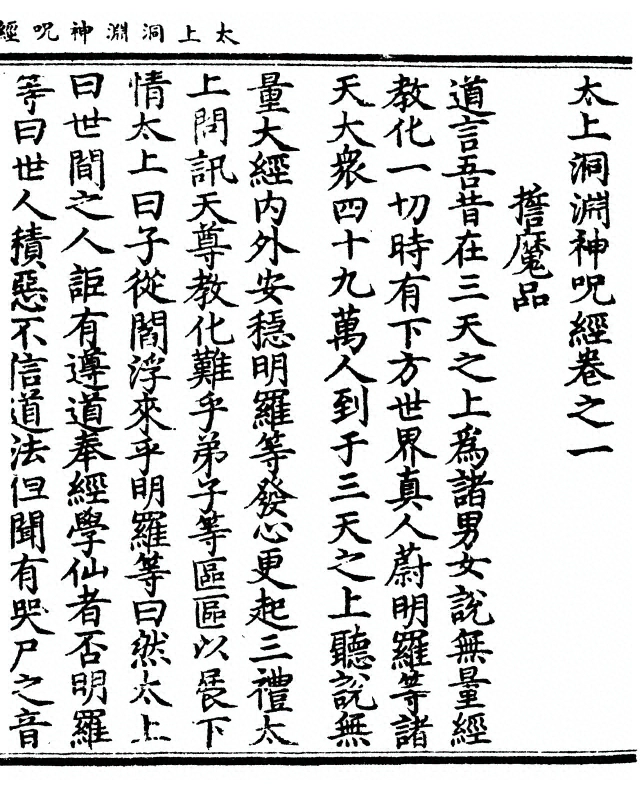 太上洞淵神呪經
太上洞淵神呪經卷之一
誓魔品
道言吾昔在三天之上爲諸男女說無量經
教化一切時有下方世界真人蔚明羅等諸
天大衆四十九萬人到于三天之上聽說無
量大經内外安穩明羅等發心更起三禮太
上問訊天尊教化難乎弟子等區區以晨下
情太上曰子從閻浮來乎明羅等曰然太上
曰世間之人詎有遵道奉經學仙者否明羅
等曰世人積惡不信道法但聞有哭尸之音